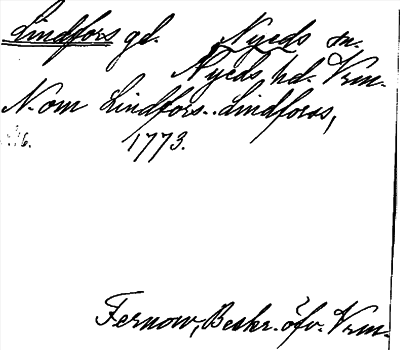 Lindfors gd. Nyeds sn.
Nyeds hd. Vrm.
N. om Lindfors. Lindforss,
1773.
Fernow, Beskr. öfv. Vrm.